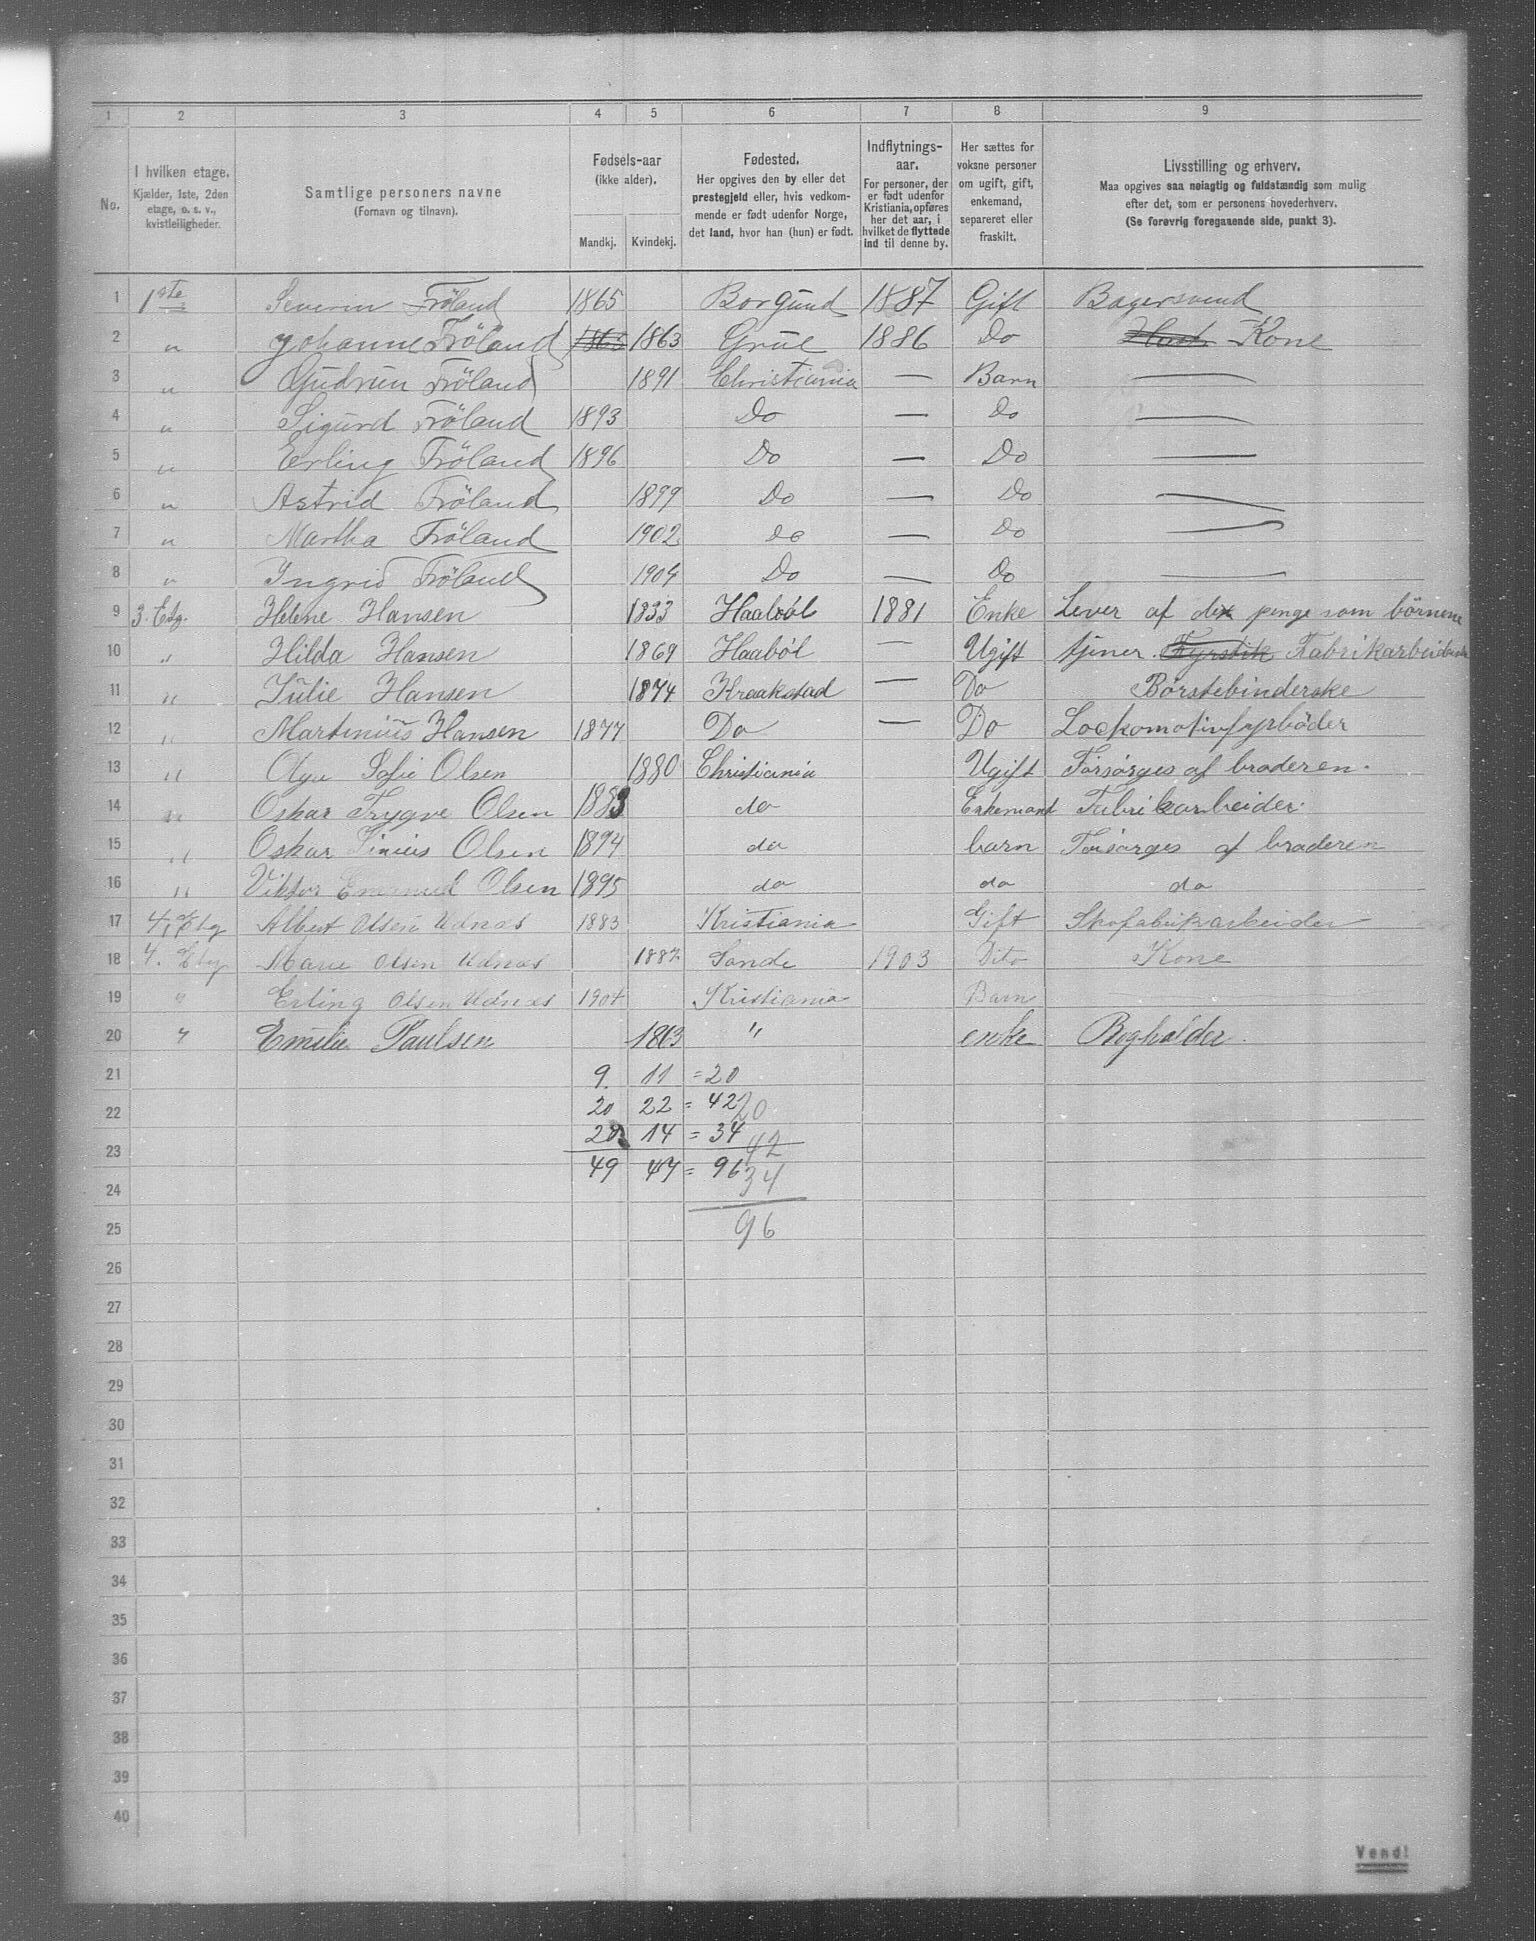 1 2 3 4 5 6 7 8 9
No. | I hvilken etage. Kjælder, 1ste, 2den etage, o. s. v., kvistleiligheder. | Samtlige personers navne (Fornavn og tilnavn). | Fødsels-aar (ikke alder). Mandkj. Kvindekj. | Fødested. Her opgives den by eller det prestegjeld eller, hvis vedkommende er født udenfor Norge, det land, hvor han (hun) er født. | Indflytnings-aar. For personer, der er født udenfor Kristiania, opføres her det aar, i hvilket de flyttede ind til denne by. | Her sættes for voksne personer om ugift, gift, enkemand, separeret eller fraskilt. | Livsstilling og erhverv. Maa opgives saa nøiagtig og fuldstændig som mulig efter det, som er personens hovederhverv. (Se forøvrig foregaaende side, punkt 3).
1 1ste Severin Fröland 1865 Borgund 1887 Gift Bagersvend
2 " Johanne Fröland 1863 Grue 1886 Do Kone
3 " Gudrun Fröland 1891 Christiania — Barn —
4 " Sigurd Fröland 1893 Do — Do —
5 " Erling Fröland 1896 Do — Do —
6 " Astrid Fröland 1899 Do — Do —
7 " Martha Fröland 1902 do — Do —
8 " Ingrid Fröland 1904 Do — Do —
9 3. Etg. Helene Hansen 1833 Haabøl 1881 Enke Lever af de penge som börnene
10 " Hilda Hansen 1869 Haabøl — Ugift tjener Fyrstik Fabrikarbeiderske
11 " Julie Hansen 1874 Kraakstad — Do Børstebinderske
12 " Martinius Hansen 1877 Do — Do Lockomotivfyrböder
13 " Olga Sofie Olsen 1880 Christiania Ugift Forsørges af broderen.
14 " Oskar Trygve Olsen 1883 do Enkemand Fabrikarbeider.
15 " Oskar Olsen 1894 do barn Forsørges af broderen
16 " Viktor Emanuel Olsen 1895 do do do
17 4. Etg Albert Olsen Udnæs 1883 Kristiania Gift Skofabrikarbeider
18 4. Etg Marie Olsen Udnæs 1882 Sande 1903 Dito Kone
19 " Erling Olsen Udnæs 1904 Kristiania Barn
20 " Emilie Paulsen 1863 " enke Bogholder.
21 9 11 = 20
22 20 22 = 42 20
23 20 14 = 34 42
49 47 = 96 34
24
25 96
26
27
28
29
30
31
32
33
34
35
36
37
38
39
40
Vend!